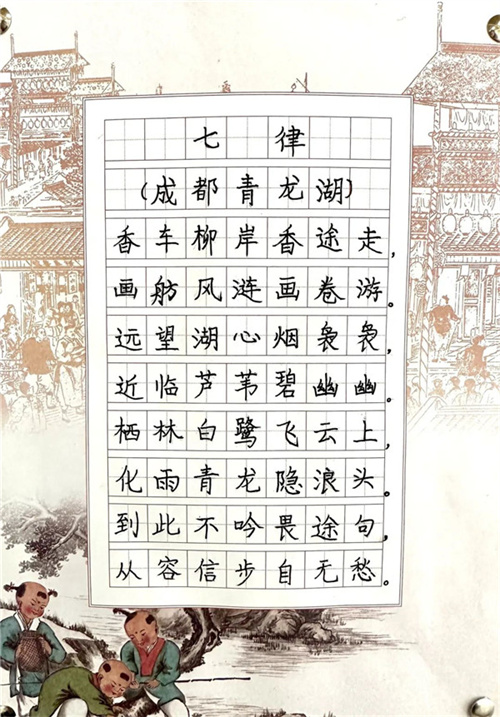 七律
(成都青龙湖)
香车柳岸香途走,
画舫风涟画卷游。
远望湖心烟袅袅,
近临芦苇碧幽幽。
栖林白鹭飞云上,
化雨青龙隐浪头。
到此不吟畏途句,
从容信步自无愁。